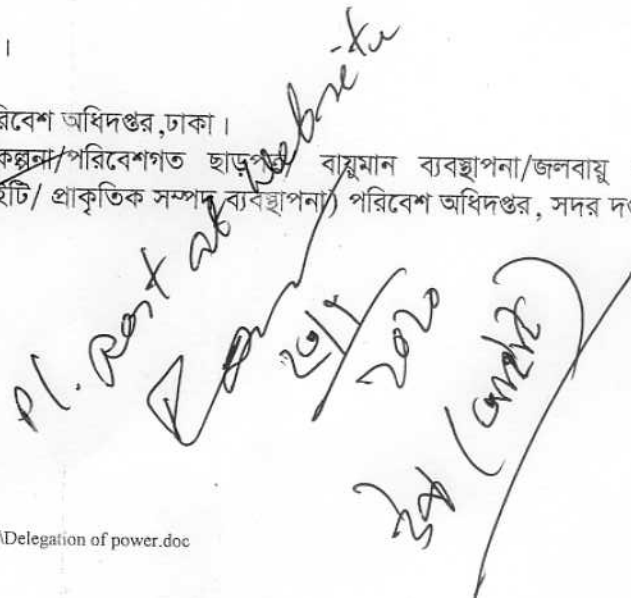 ।
রিবেশ অধিদপ্তর,ঢাকা।
কল্পনা/পরিবেশগত ছাড়পত্র/ বায়ুমান ব্যবস্থাপনা/জলবায়ু
ইটি/ প্রাকৃতিক সম্পদ ব্যবস্থাপনা) পরিবেশ অধিদপ্তর, সদর দপ্ত
Pl. Post at website
\Delegation of power.doc